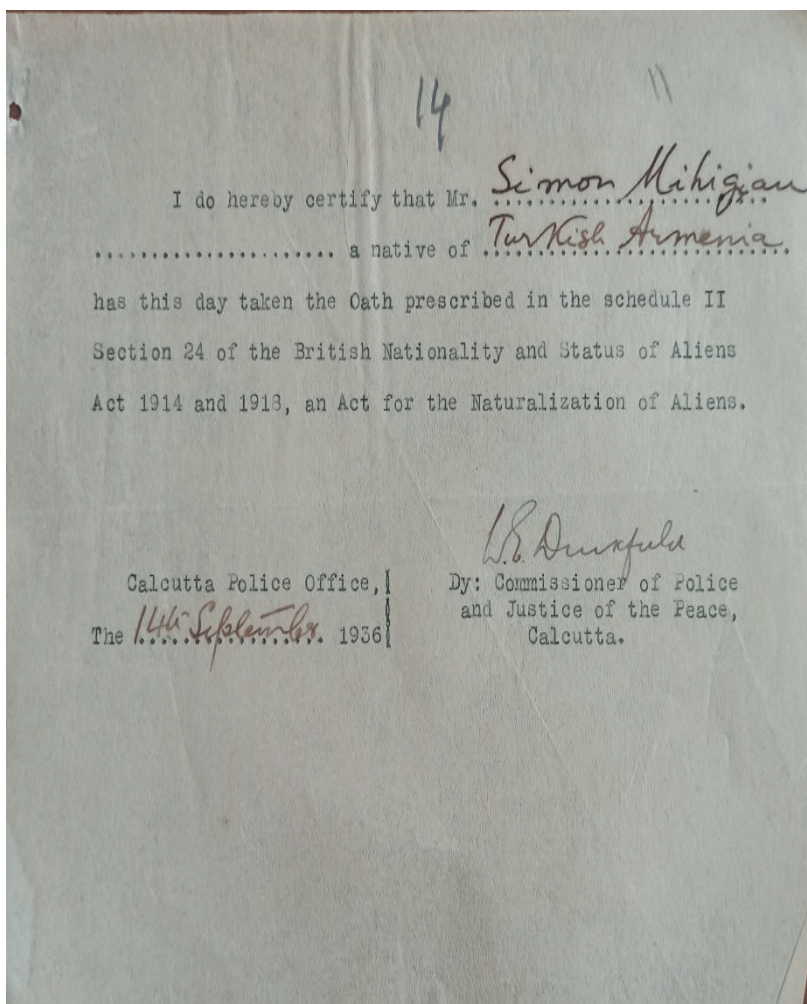 14 11
I do hereby certify that Mr. Simon Mihigian
.................... a native of Turkish Armenia
has this day taken the Oath prescribed in the schedule II
Section 24 of the British Nationality and Status of Aliens
Act 1914 and 1918, an Act for the Naturalization of Aliens.
W.E.
Calcutta Police Office,
Dy: Commissioner of Police
and Justice of the Peace,
The 14th September. 1936
Calcutta.